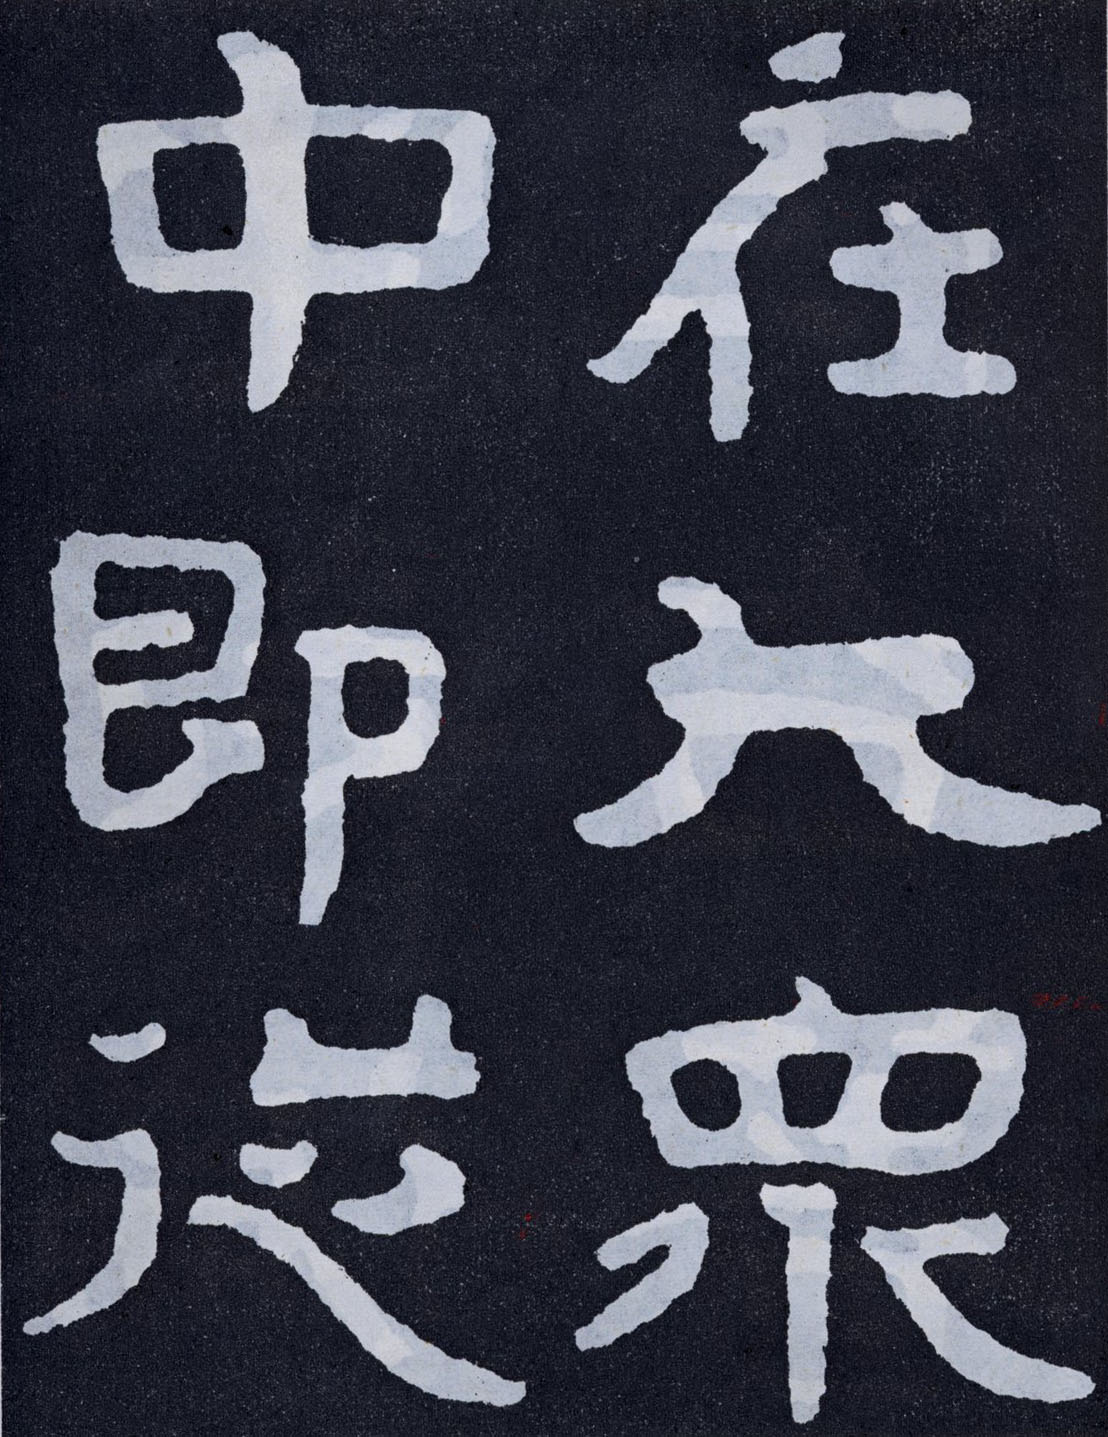 在大衆
中即從